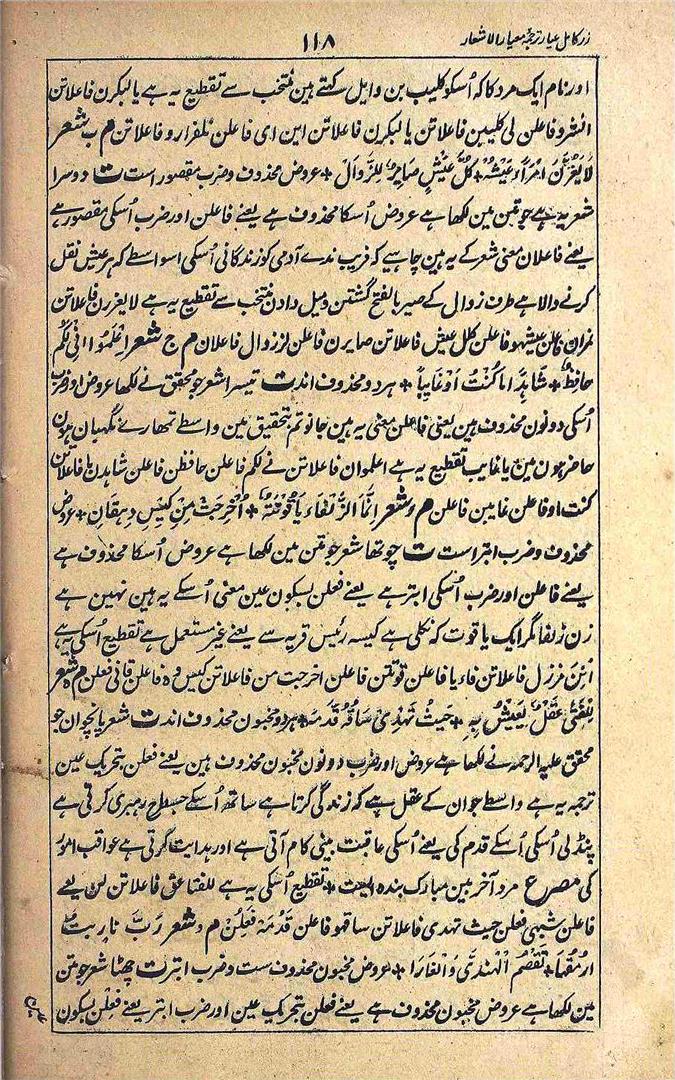 زر کامل عیار ترجمۂ معیار الاشعار
۱۱۸
اور نام ایک مرد کا کہ اُسکو کلیب بن وایل کہتے ہین منتخب سے تقطیع یہ ہے یالبکرن فاعلاتن
انشرو فاعلن لی کلیبن فاعلاتن یالبکرن فاعلاتن این ای فاعلن نلفرارو فاعلاتن م ب شعر
لَا یَغُرَّنَّ امْرَأً عَیْشُہٗ + کُلُّ عَیْشٍ صَایِرٌ لِلزَّوَالْ + عروض محذوف و ضرب مقصور است ت دوسرا
شعر یہ ہے جو متن مین لکھا ہے عروض اُسکا محذوف ہے یعنے فاعلن اور ضرب اُسکی مقصور ہے
یعنے فاعلان معنی شعر کے یہ ہین چاہیے کہ فریب ندے آدمی کو زندگانی اُسکی اسواسطے کہ ہر عیش نقل
کرنے والا ہے طرف زوال کے صیر بالفتح گشتن و میل دادن منتخب سے تقطیع یہ ہے لایغررن فاعلاتن
نمرأن فاعلن عیشہو فاعلن کل عیش فاعلاتن صایرن فاعلن لززوال فاعلان م ج شعر اِعْلَمُوْا اَنِّیْ لَکُمْ
حَافِظٌ + شَاہِدًا مَا کُنْتُ اَوْ غَایِبًا + ہر دو محذوف اندت تیسرا شعر جو محقق نے لکھا عروض اور ضرب
اُسکی دونون محذوف ہین یعنی فاعلن معنی یہ ہین جانو تم بتحقیق مین واسطے تمھارے نگہبان ہون
حاضر ہون مین یا غایب تقطیع یہ ہے اعلموان فاعلاتن نے لکم فاعلن حافظن فاعلن شاہدن ما فاعلاتن
کنت او فاعلن غایبن فاعلن م د شعر اِنَّمَا الذَّلْفَاءُ یَاقُوْتَۃٌ + اُخْرِجَتْ مِنْ کِیْسِ دِہْقَانِ + عروض
محذوف و ضرب ابتر است ت چوتھا شعر جو متن مین لکھا ہے عروض اُسکا محذوف ہے
یعنے فاعلن اور ضرب اُسکی ابتر ہے یعنے فعلن بسکون عین معنی اُسکے یہ ہین نہین ہے
زن ذلفا مگر ایک یاقوت کہ نکلی ہے کیسہ رئیس قریہ سے یعنے غیر مستعمل ہے تقطیع اُسکی یہ ہے
انن مذزل فاعلاتن فاء یا فاعلن قوتتن فاعلن اخرجت من فاعلاتن کیس دہ فاعلن قانی فعلن م ہ شعر
لِلْفَتٰی عَقْلٌ یَعِیْشُ بِہٖ + حَیْثُ تَہْدِیْ سَاقَہٗ قَدَمُہٗ + ہر دو مخبون محذوف اندت شعر پانچوان جو
محقق علیہ الرحمہ نے لکھا ہے عروض اور ضرب دونون مخبون محذوف ہین یعنے فعلن بتحریک عین
ترجمہ یہ ہے واسطے جوان کے عقل ہے کہ زندگی کرتا ہے ساتھ اُسکے جسطرح رہبری کرتی ہے
پنڈلی اُسکی اُسکے قدم کی یعنے اُسکی عاقبت بینی کام آتی ہے اور ہدایت کرتی ہے عواقب امور
کی مصرع مرد آخر بین مبارک بندہ ایست + تقطیع اُسکی یہ ہے للفتاعق فاعلاتن لن یعے
فاعلن شبہی فعلن حیث تہدی فاعلاتن ساقہو فاعلن قَدَمُہٗ فَعِلُنْ م و شعر رُبَّ نَارٍ بِتُّ
اَرْمُقُہَا + تَقْضَمُ الْہِنْدِیَّ وَالْغَارَا + عروض مخبون محذوف ست و ضرب ابترت چھٹا شعر جو متن
مین لکھا ہے عروض مخبون محذوف ہے یعنے فعلن بتحریک عین اور ضرب ابتر یعنے فعلن بسکون